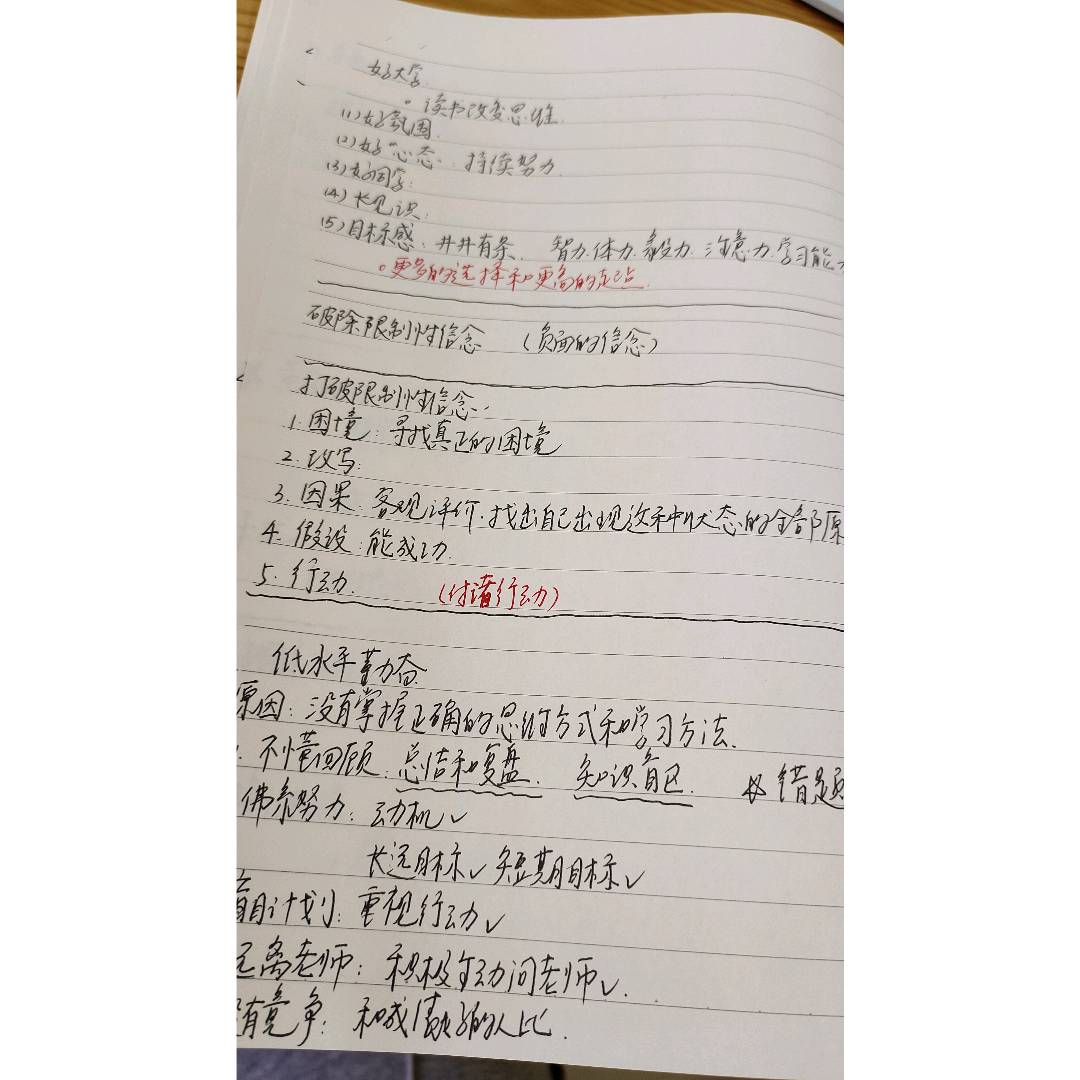 好大学
。读书改变思维.
(1)好氛围.
(2)好心态. 持续努力.
(3)好同学.
(4)长见识.
(5)目标感. 井井有条. 智力.体力.毅力.注意力.学习能
。更多的选择和更高的起点.
破除限制性信念 (负面的信念)
打破限制性信念:
1.困境: 寻找真正的困境
2.改写:
3.因果: 客观评价.找出自己出现这种状态的全部原
4.假设: 能成功.
5.行动. (付诸行动)
低水平勤奋
原因: 没有掌握正确的思维方式和学习方法.
不懂回顾. 总结和复盘. 知识自己. 错题
佛系努力: 动机✓
长远目标✓ 短期目标✓
盲目计划: 重视行动✓
远离老师: 积极主动问老师✓.
有竞争: 和成绩好的人比.